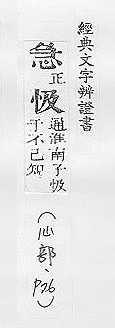 經典文字辨證書
急正
忣通淮南子忣
于不己知
(心部、P26)